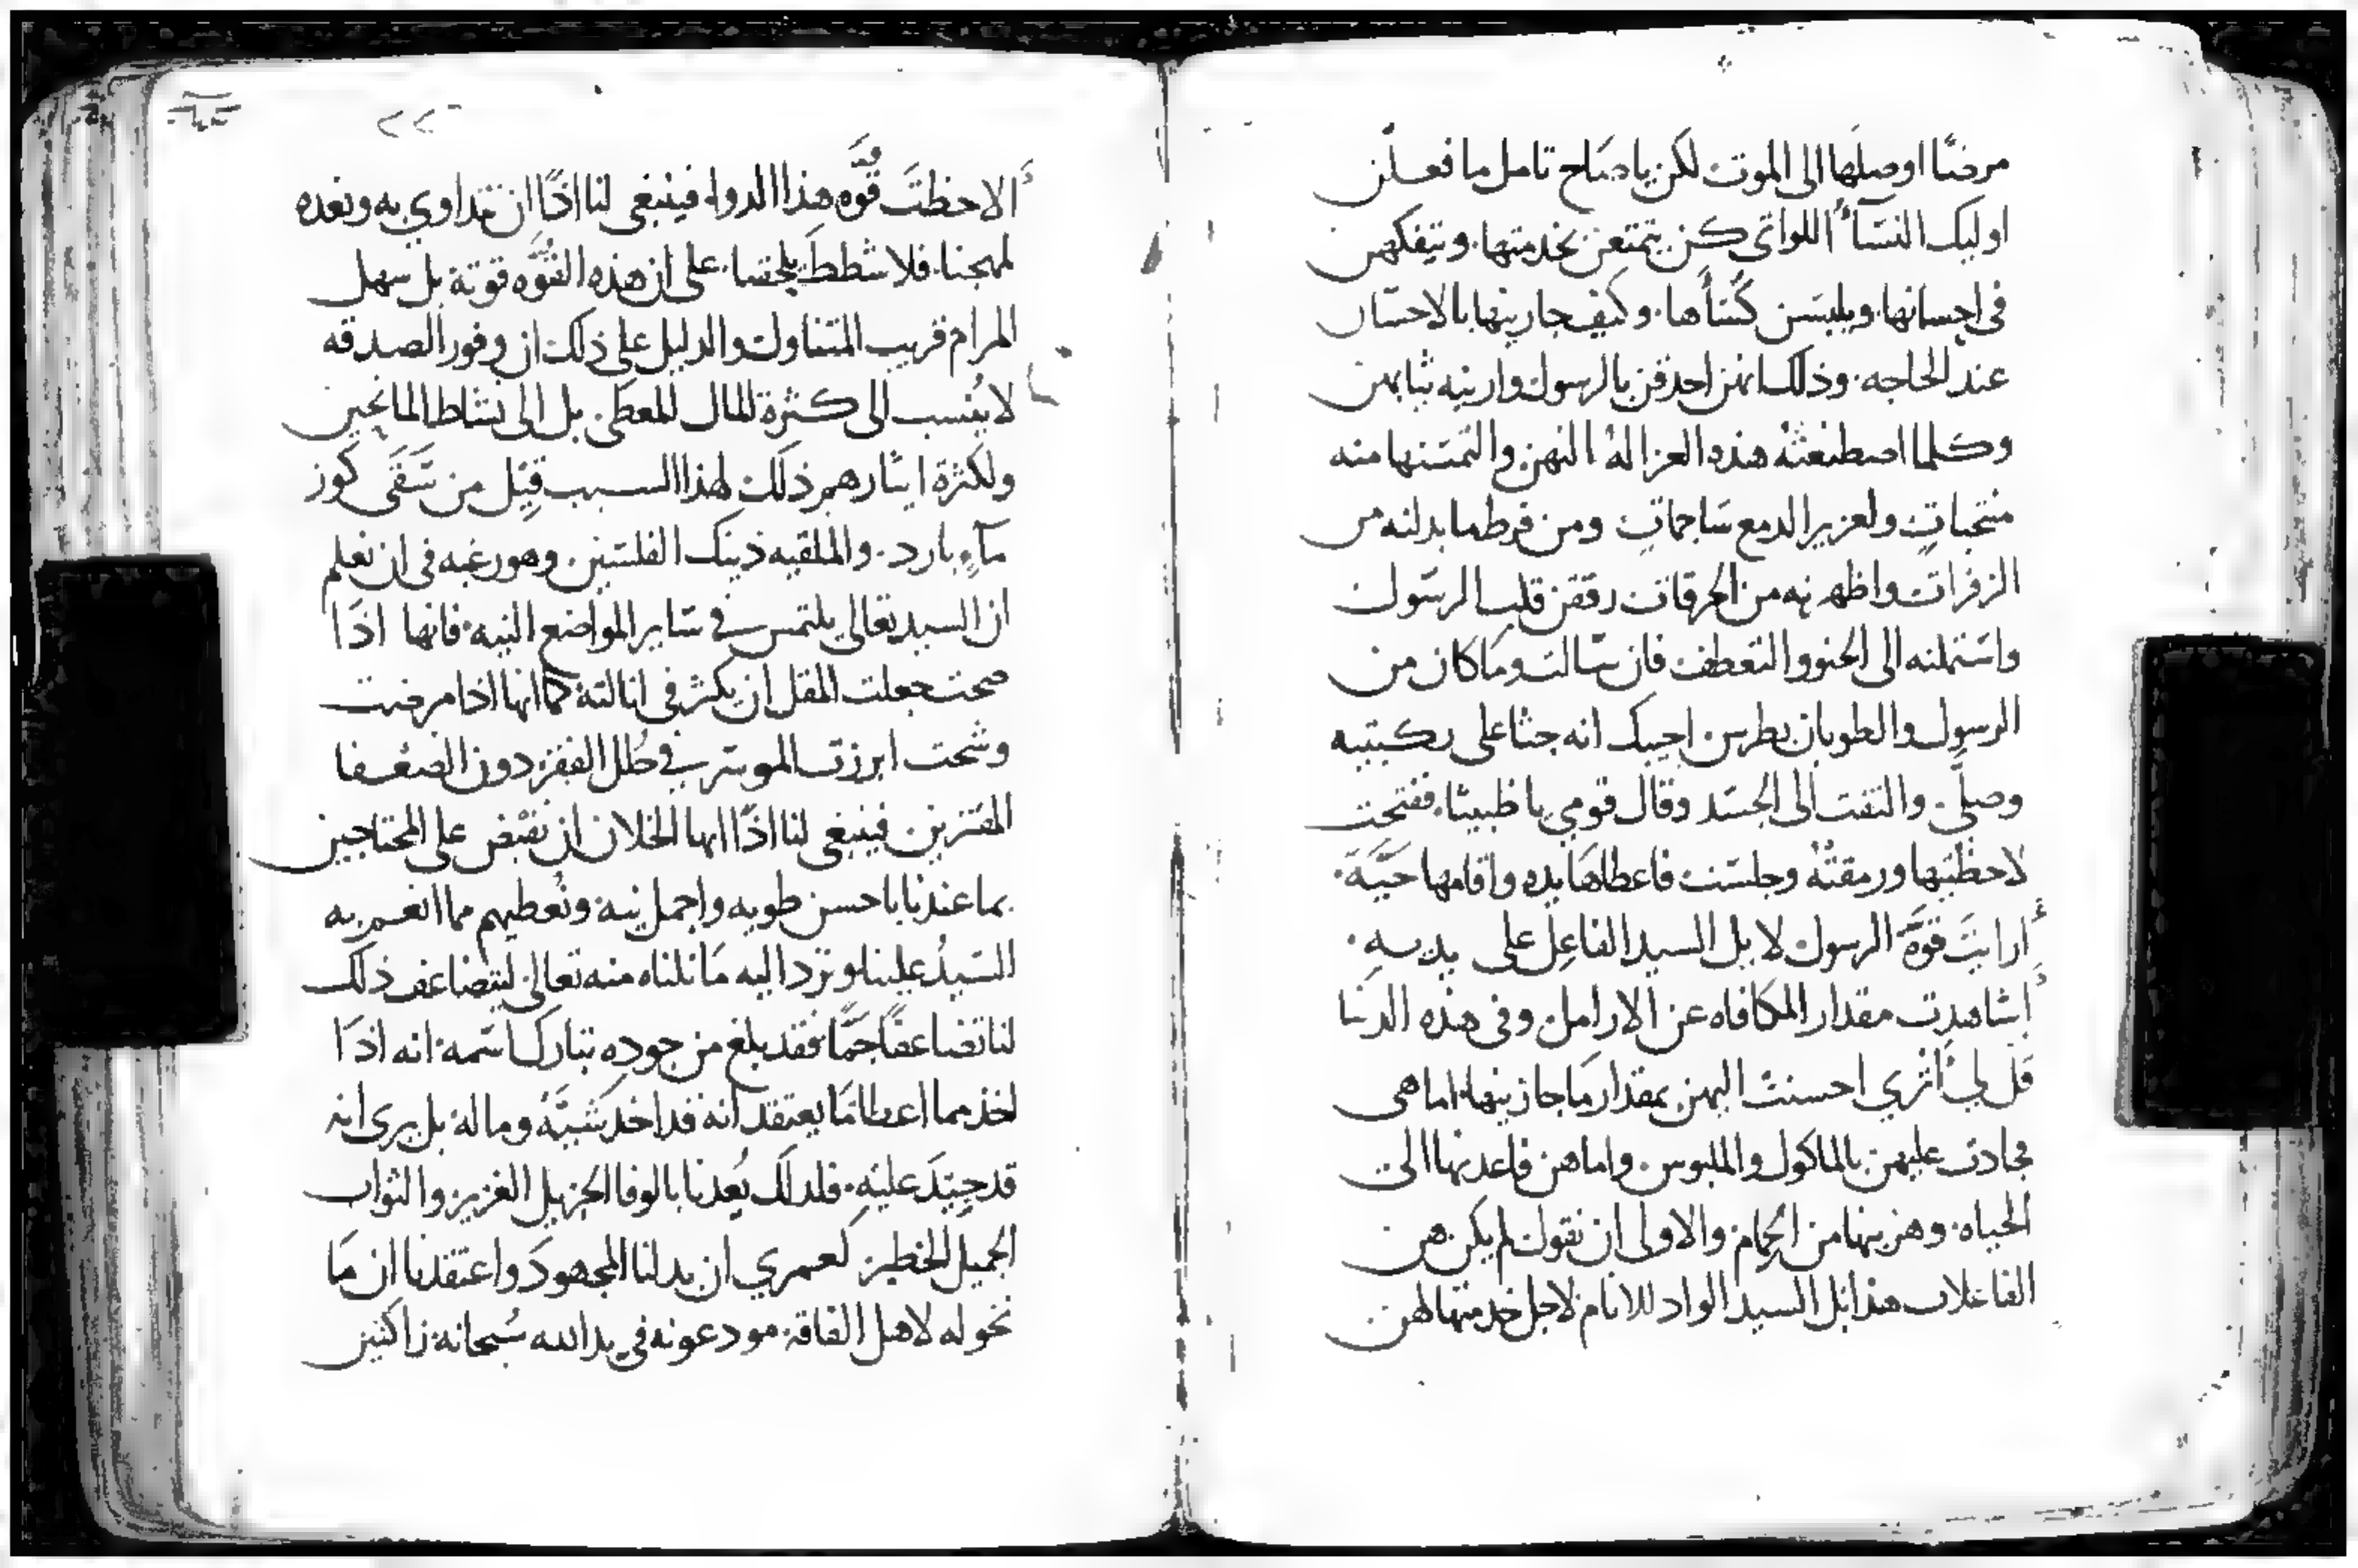 مرضًا اوصلها الى الموت لكن يا صَاح تامل ما فعلن
اوليك النسَآء اللواتى كن يتمتعن بخدمتها. ويتفكهن
فى احسانها. ويلبسَن كُسَاها. وكيف جازينها بالاحسَان
عند الحاجه. وذلك انهن احدقن بالرسول وارينه ثيابهن
وكلما اصطنعتْه هذه الغزاله اليهن والتمسَنها منه
منتحباتٍ ولغزير الدمع سَاجماتٍ ومن فرط ما بدلنه من
الزفرات واظهرنه من الحرقات رققن قلب الرسَول
واسَتملنه الى الحنو والتعطف فان سَالت وما كان من
الرسول والطوبان بطرس احيبك انه جثا على ركبتيه
وصلَّى. والتفت الى الجسَد وقال قومي يا ظبيثا. ففتحت
لاحظتيها ورمقتْه وجلسَت فاعطاهَا يده واقامها حَيَّةَ.
أرايتَ قوَّةَ الرسول لا بل السيد الفاعِل على يديه.
أشاهدت مقدار المكافاه عن الارامل وفى هذه الدنيا
قل لي أترى احسنت اليهن بمقدار ما جازينها. اما هى
فجادت عليهن بالماكول والملبوس. واما هن فاعدنها الى
الحياه. وهزينها من الحِمام والاولى ان نقول لم يكن هن
الفاعلات هذا بل السيد الواد للانام لاجل خدمتها لهن
ألاحظتَ قُوَّه هذا الدوا. فينبغى لنا اذًا ان نتداوي به ونعده
لمهجنا. فلا شططَ يلحقنا. على ان هذه القُوَّه قوته بل سهل
المرام قريب المتناول والدليل على ذلك ان وفور الصدقه
لا ينُسب الى كثرة المال المعطى. بل الى نشاط المانحين
ولكثرة ايثارهم ذلك لهذا السبب قِيْل من سَقَى كوز
مآءٍ بارد. والملقيه ذينك الفلسَين. وهو رغبه فى ان نعلم
ان السيد تعالى يلتمس في سَاير المواضع النيه. فانها اذَا
صحت جعلت المقل ان يكثر فى انالته كما انها اذا مرضت
وشحت ابرزت الموسَر في حُلل الفقر دون الضعفا
المقترين. فينبغى لنا اذًا ايها الخلان ان نقبض على المحتاجين
بما عندنا باحسن طويه واجمل نيه ونُعطيهم مما انعم به
السَيدُ علينا ونرد اليه مَا نلناه منه تعالى ليتضاعف ذلك
لنا تضاعفًا جَمًّا فقد بلغ من جودِه تبارك اسَمه انه اذَا
اخذ مما اعطا مَا يعتقد انه قد اخذ شيَّه وماله بل يرى انه
قد جيّدَ عليْهِ. فلذلك يُعدنا بالوفا الجزيل الغزيز والثواب
الجميل الخطير لعمري ان بدلنا المجهودَ واعتقدنا ان مَا
نخوله لاهل الفاقه مودعونه في يد الله سُبحانه زاكنين